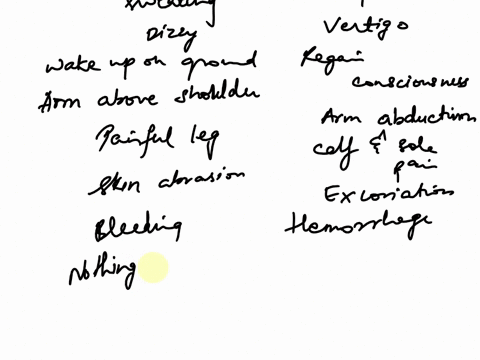 sweating
Dizey Vertigo
wake up on ground Regain
consciousness
Arm above shoulder Arm abduction
Painful leg calf & sole
pain
Skin abrasion Excoriation
Bleeding Hemorrhage
Nothing